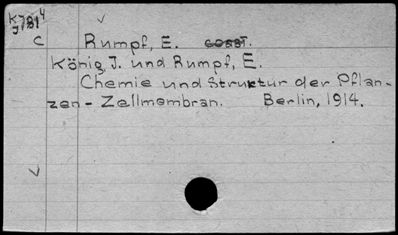 Rumpf, E.
C
König, J. und Rumpf, E.
Chemie und Struktur der Pflan-
zen-Zellmembran. Berlin, 1914.